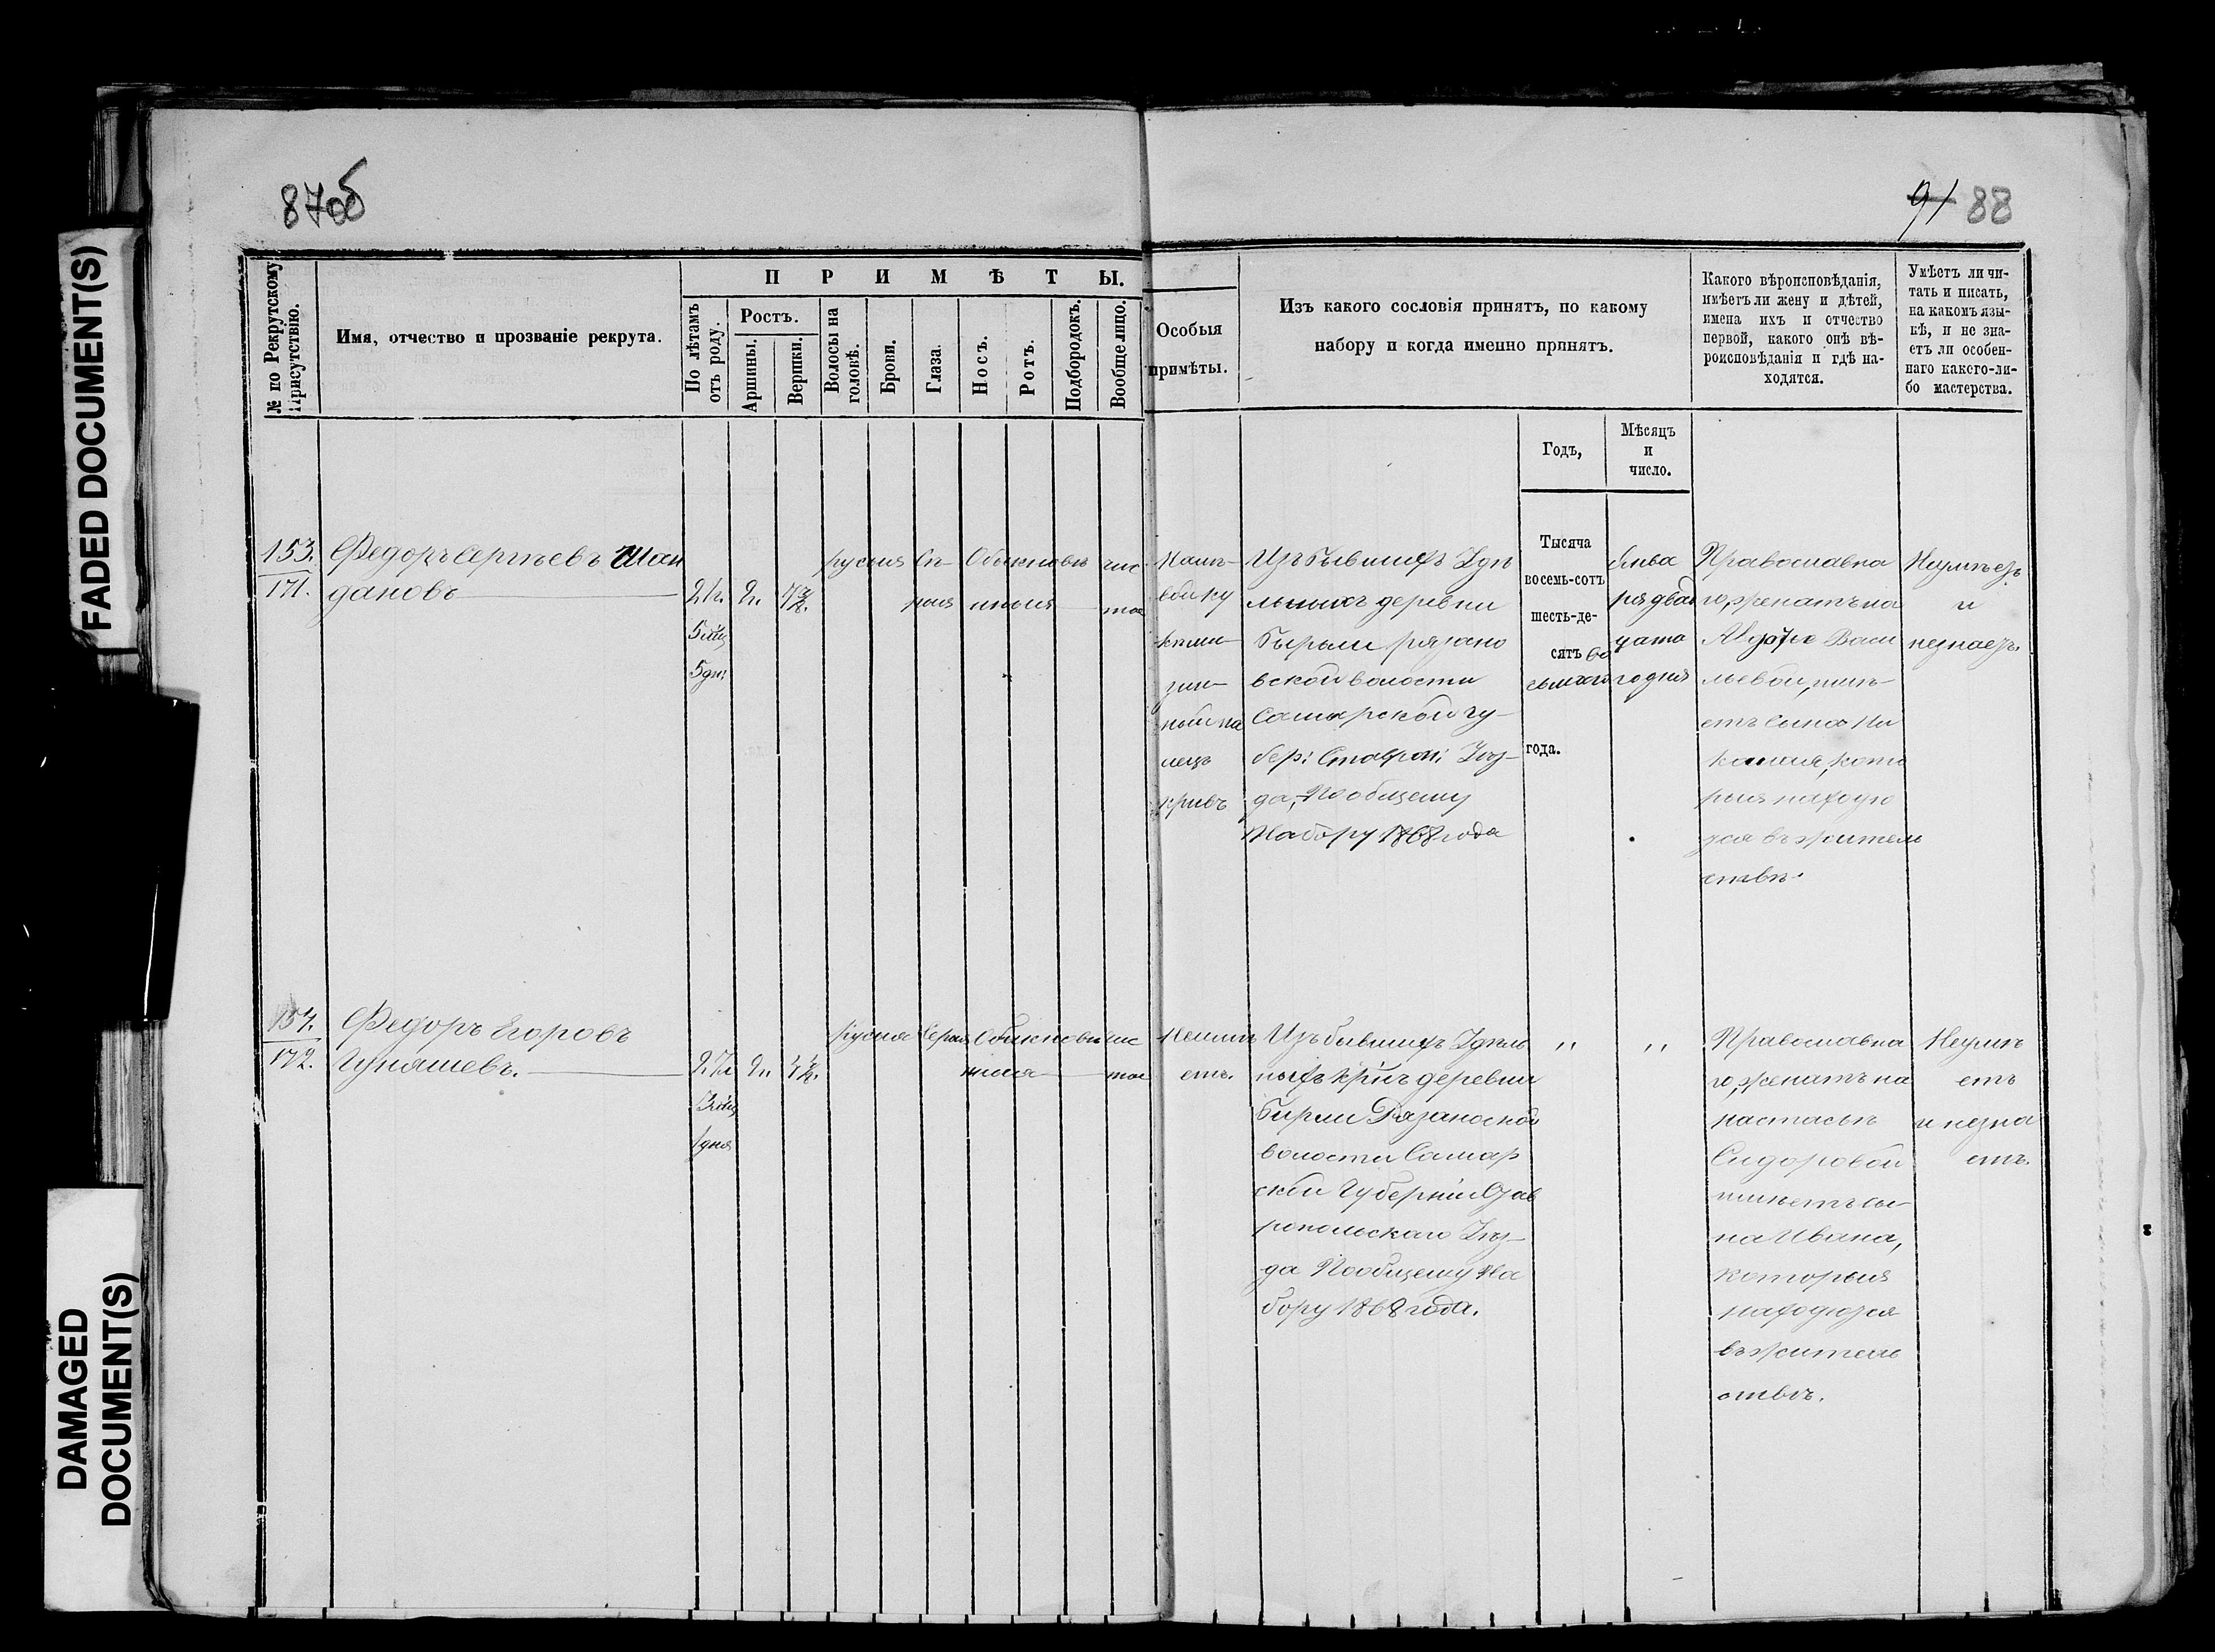 FADED DOCUMENT(S)
DAMAGED
DOCUMENT(S)
87об
91 88
№ по Рекрутскому
Присутствію.
Имя, отчество и прозваніе рекрута.
ПРИМѢТЫ.
По лѣтамъ
отъ роду.
Ростъ.
Аршины.
Вершки.
Волосы на
головѣ.
Брови.
Глаза.
Носъ.
Ротъ.
Подбородокъ.
Вообще лицо.
Особыя
примѣты.
Изъ какого сословія принятъ, по какому
набору и когда именно принятъ.
Какого вѣроисповѣданія,
имѣетъ ли жену и дѣтей,
имена ихъ и отчество
первой, какого онѣ вѣ-
роисповѣданія и гдѣ на-
ходятся.
Умѣетъ ли чи-
тать и писать,
на какомъ язы-
кѣ, и не зна-
етъ ли особен-
наго какого-ли-
бо мастерства.
Годъ,
Мѣсяцъ
и
число.
153.
171.
Федоръ Сергѣевъ Шан
дановъ
21.
5 мѣц
5 дн:
2.
русыя
Сѣ-
рыя
Обыкновѣ
нныя
чис-
тое
На
лецъ
кривъ
Изъ бывшихъ Удѣ
льныхъ деревни
Бирли рязано
вской волости
Самарской гу-
бер: Ставроп: Уѣз-
да, По общему
Набору 1868 года
Тысяча
восемь-сотъ
шесть-де-
сятъ во
сьмого
года.
Янва
ря двад
цата
го дня
Православна
го, женатъ на
Авдотье Васи
льевой, имѣ-
етъ сына Ни
кото
рыя находю
тся въ житель
ствѣ.
Неумѣетъ
и
незнаетъ.
154.
172.
Федоръ Егоровъ
Гуняшевъ.
27
3 мѣц
1 дня
2.
русыя
Серыя
Обыкновѣ
нныя
чис
тое
Неимѣ
етъ.
Изъ бывшихъ Удѣль
ныхъ деревни
Бирли Рязановской
волости Самар
ской Губерніи Став
ропольскаго Уѣз-
да По общему На
бору 1868 года.
,,
,,
Православна
го, женатъ на
настасьѣ
Сидоровой
имѣетъ сы-
на Ивана,
которыя
находются
въ житель
ствѣ.
Неумѣ
етъ
и незна
етъ.